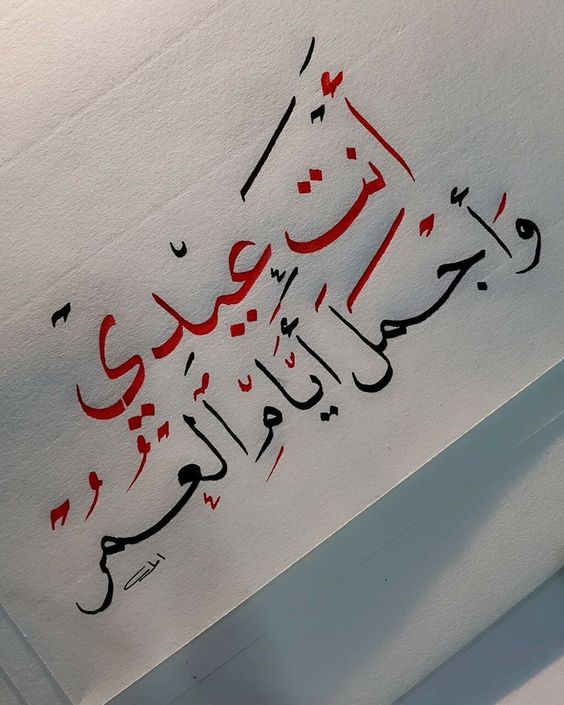 أنت عيدي
وأجمل أيام العمر